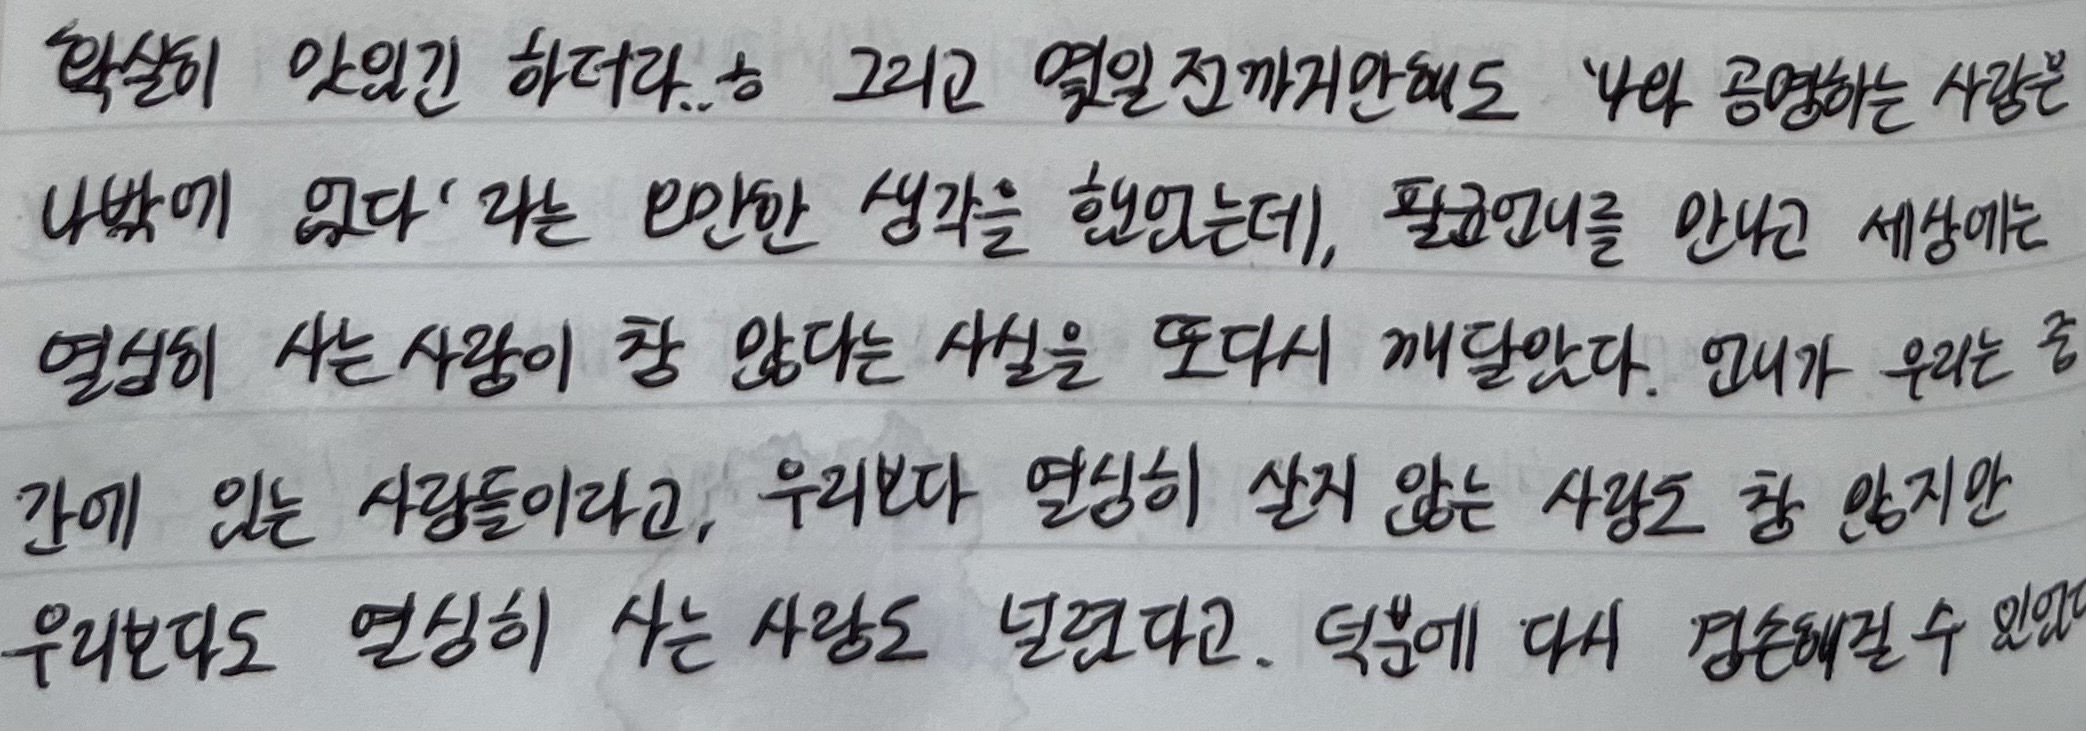 확실히 맛있긴 하더라..ㅎ 그리고 몇일 전까지만해도 '나와 공명하는 사람은
나밖에 없다' 라는 오만한 생각을 했었는데, 언니를 만나고 세상에는
열심히 사는 사람이 참 많다는 사실을 또다시 깨달았다. 언니가 우리는 중
간에 있는 사람들이라고, 우리보다 열심히 살지 않는 사람도 참 많지만
우리보다도 열심히 사는 사람도 널렸다고. 덕분에 다시 겸손해질 수 있었다